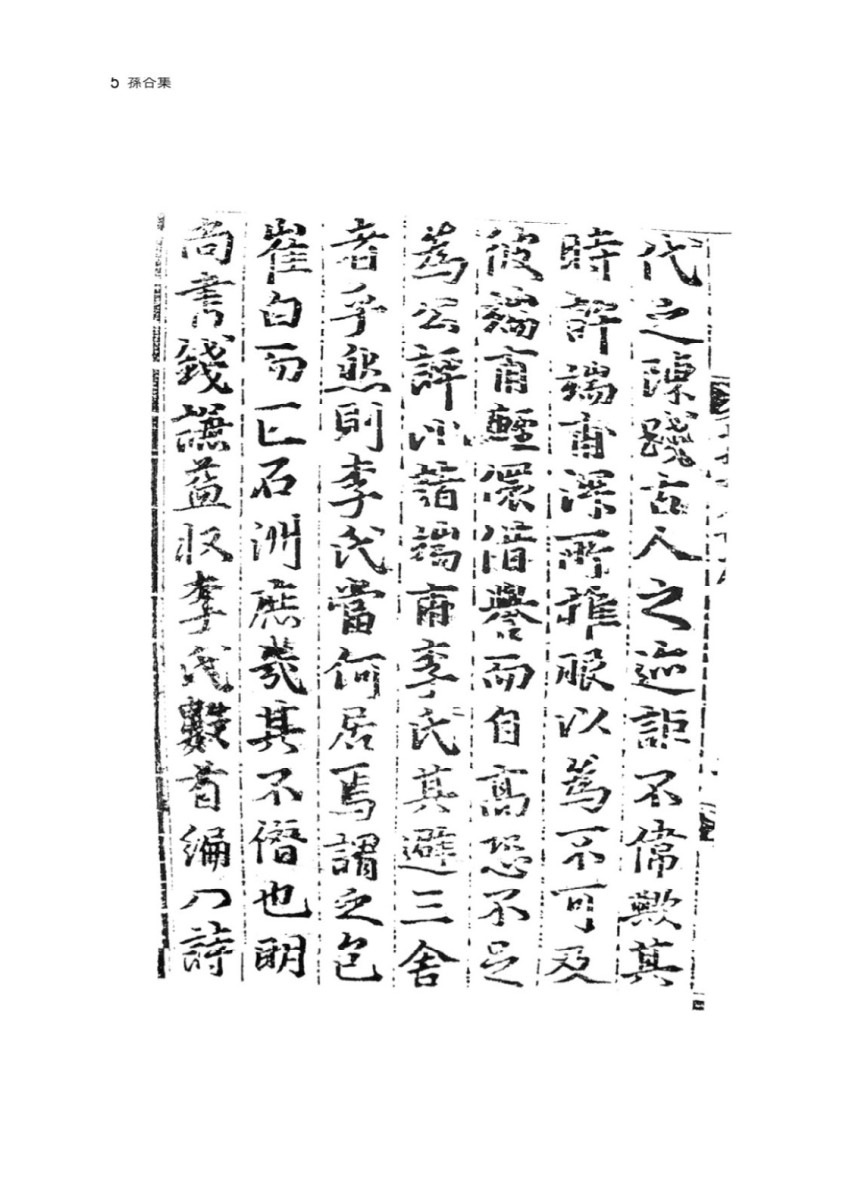 5 孫合集
代之陳踐古人之迹詎不偉歟其
時許端甫深所推服以為不可及
彼端甫輕儇借譽而自高恐不足
為公評以藉端甫李氏其避三舍
者乎然則李氏當何居焉謂之包
崔白而匹石洲庶幾其不僭也明
尚書錢謙益收李氏數首編入詩